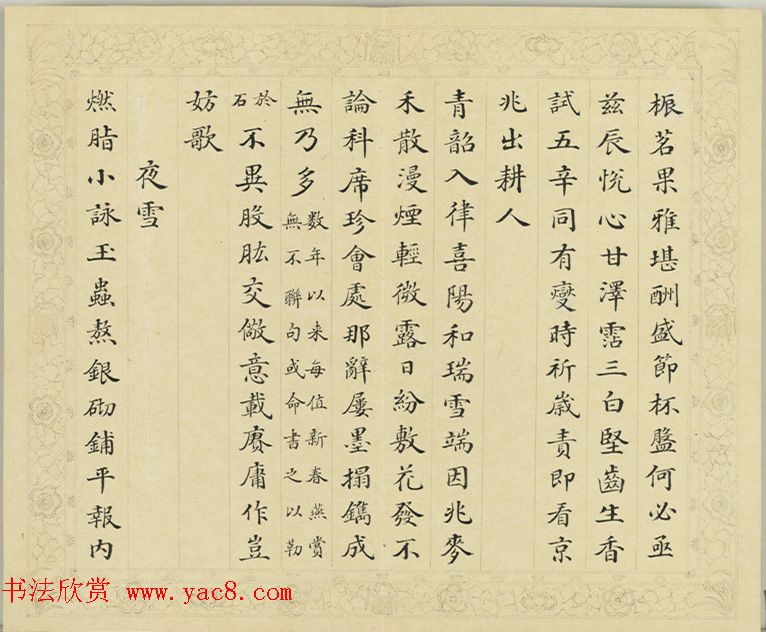 茗果雅堪酬盛節杯盤何必亟
茲辰悅心甘澤霑三白堅齒生香
試五辛同有燮時祈歲責即看京
兆出耕人
青韶入律喜陽和瑞雪端因兆麥
禾散漫煙輕微露日紛敷花發不
論科席珍會處那辭屢墨搨鐫成
無乃多數年以来每值新春燕賞
無不聯句或命書之以勒
於石不異股肱交儆意載賡庸作豈
妨歌
夜雪
燃脂小詠玉蟲熬銀砌鋪平報内
书法欣赏 www.yac8.com